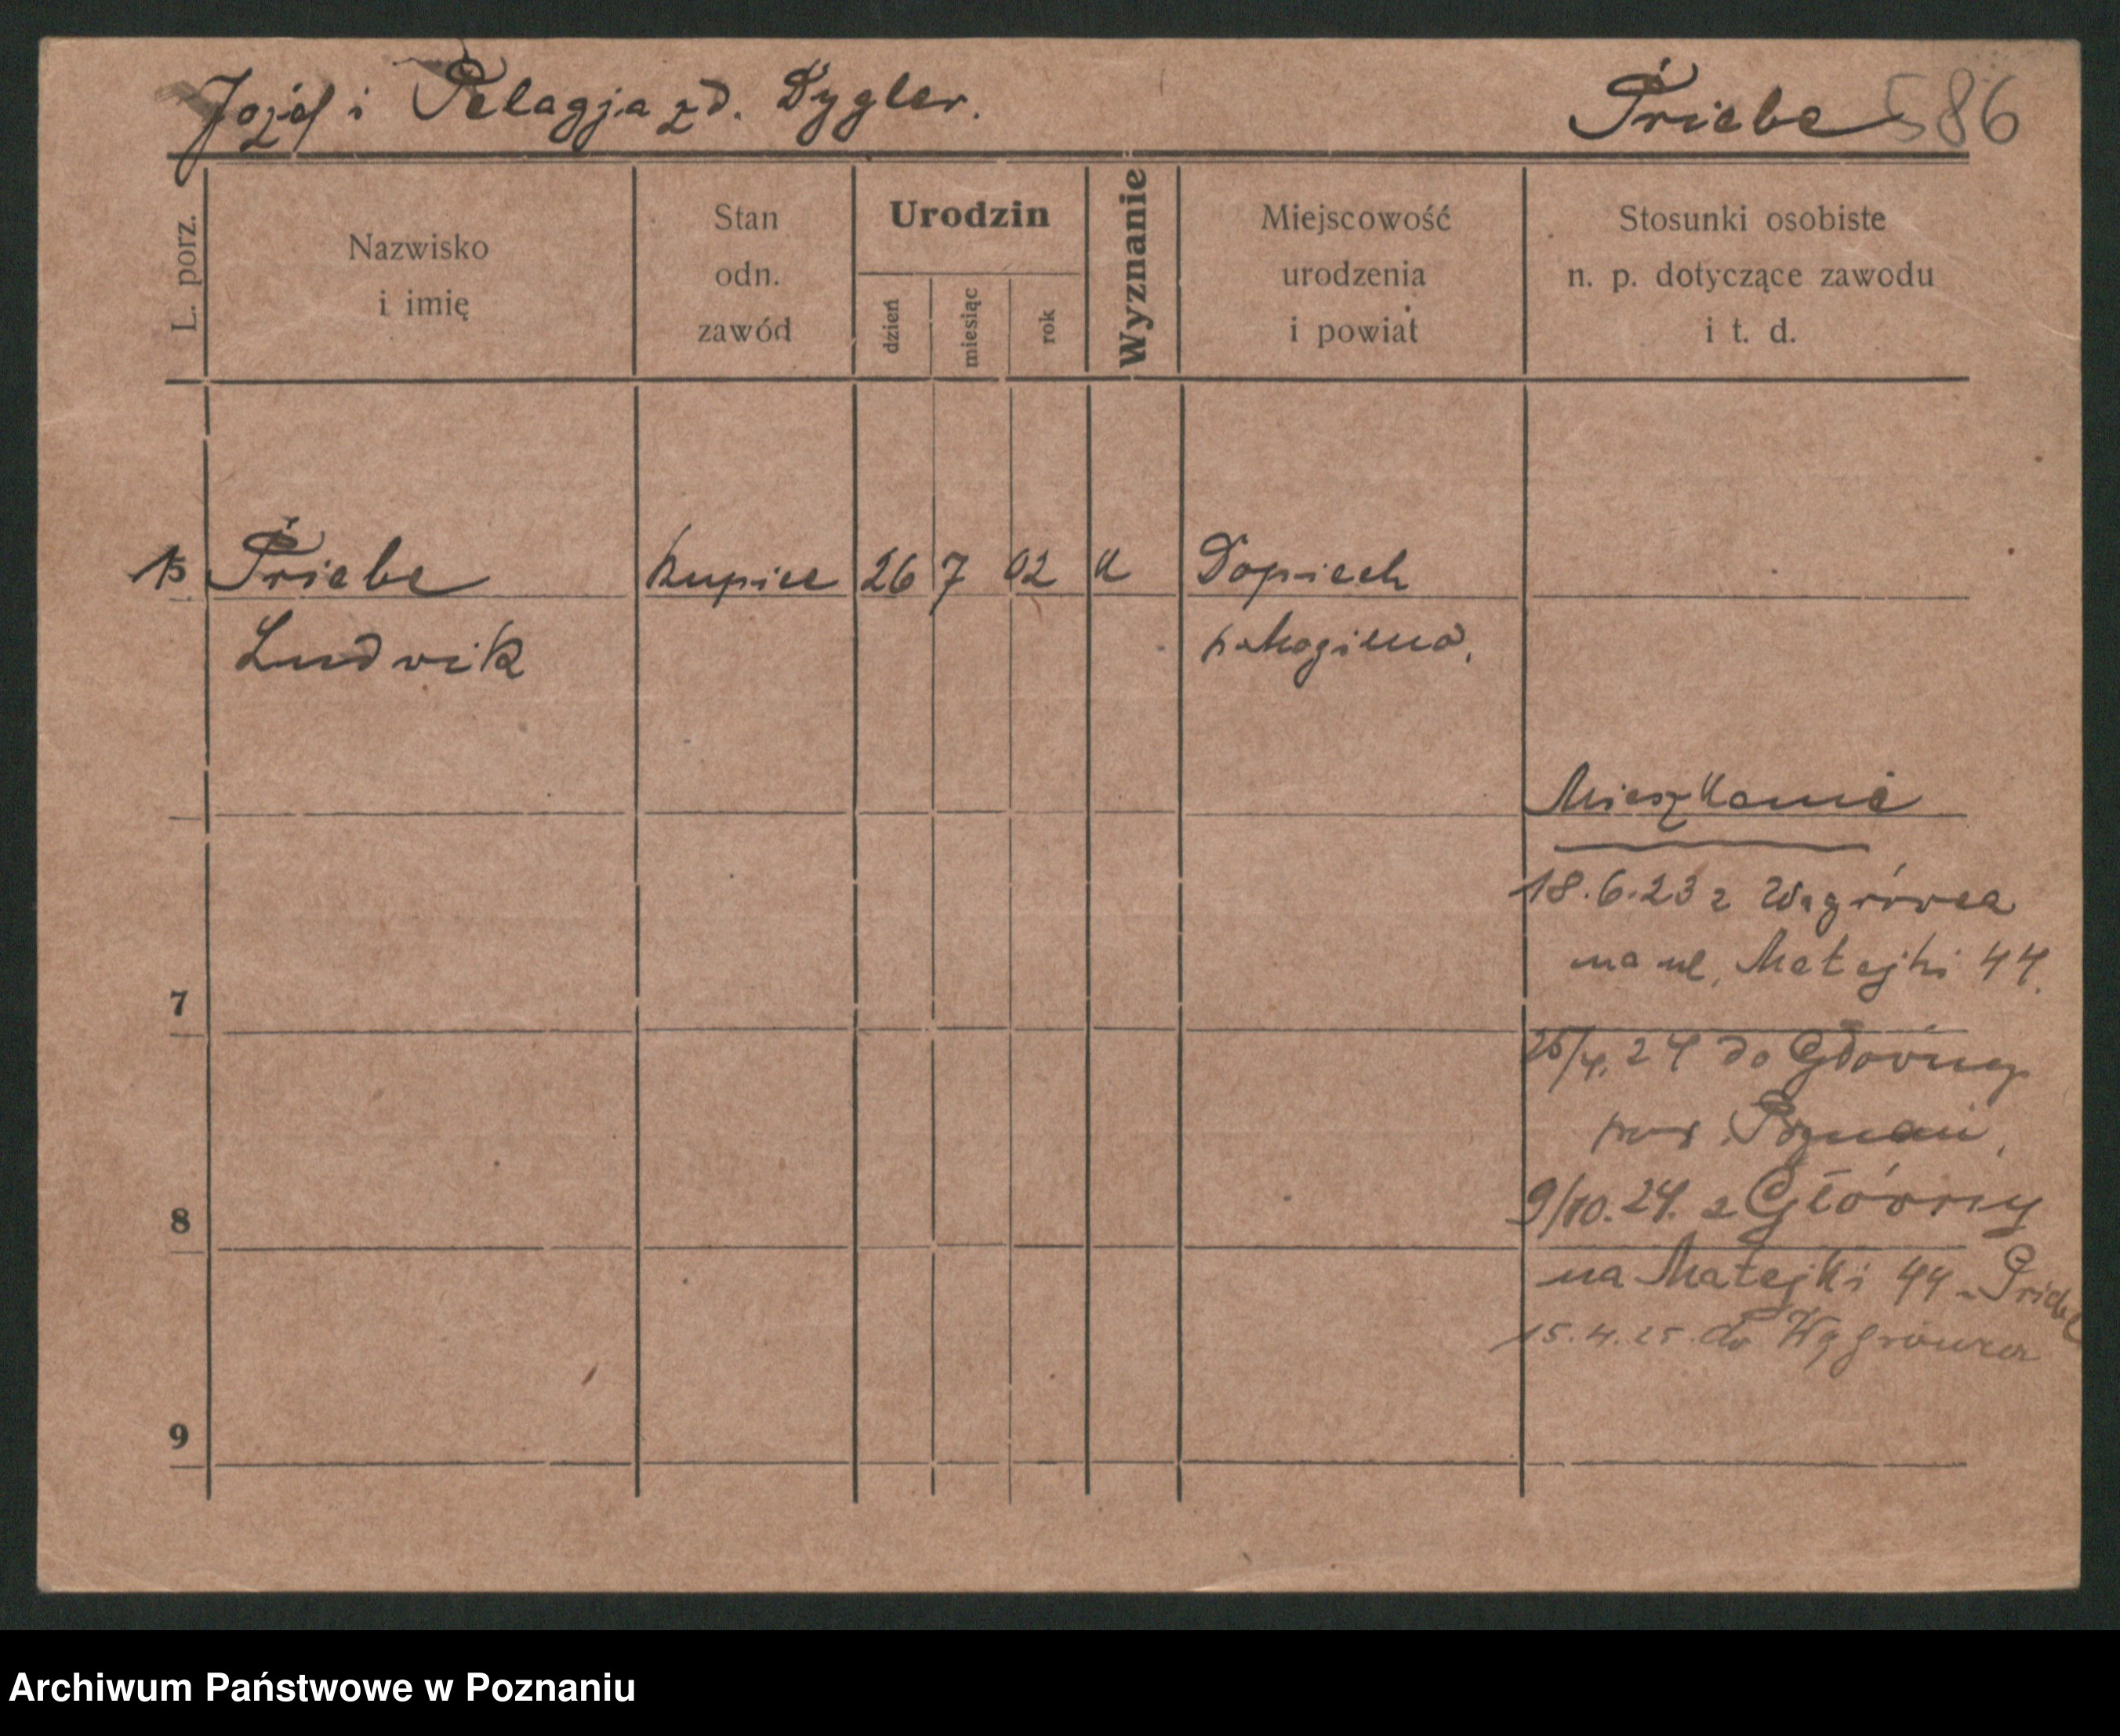 Józef i Pelagja zd. Dygler.
Priebe 586
L. porz.
Nazwisko
i imię
Stan
odn.
zawód
Urodzin
dzień
miesiąc
rok
Wyznanie
Miejscowość
urodzenia
i powiat
Stosunki osobiste
n. p. dotyczące zawodu
i t. d.
Priebe
Kupiec
26
7
02
K
Dopiech
Ludwik
p. Mogilno,
Mieszkanie
18.6.23 z Wągrówca
na ul. Matejki 44.
7
/4.24 do Główny
pow. Poznań,
9/10.24. z Główny
8
na Matejki 44 - Priebe
15.4.25. do Wągrówca
9
Archiwum Państwowe w Poznaniu